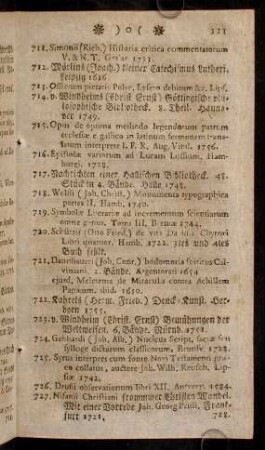 )o( 121
711. Simonii (Rich.) Historia critica commentatorum
V. & N. T. 1731.
712. Morlins (Joach.) kleiner Catechismus Lutheri.
Leipzig 1616.
713. Officium pietatis Pulpr. Lysero debitum &c. Lips.
714. v. Windheims (Christ Ernst) Göttingische phi-
losophische Bibliotheck. 8. Theil. Hanno-
ver 1749.
715. Opus de optima methodo legendorum patrum
ecclesiæ e gallico in latinum sermonem transla-
tum interprete I. F. R. Aug. Vind. 1756.
716. Epistolæ variorum ad Lucam Lossium, Ham-
burg. 1728.
717. Nachrichten einer Hallischen Bibliotheck. 48.
Stück in 4. Bände. Halle, 1748.
718. Wolfii (Joh. Christ.) Monumenta typographica
partes II. Hamb. 1740.
719. Symbolæ Litterariæ ad incrementum scientiarum
omne genus. Tomi III, Bremæ 1744.
720. Schützii (Otto Fried.) de vita Davidis Chytræi
Libri quatuor. Hamb. 1722. 3tes und 4tes
Buch fehlt.
721. Dannhaueri (Joh. Conr.) hodomoria spiritus Cal-
viniani. 2. Bände. Argentorati 1654
ejusd. Meleterma de Miracula contra Achillem
Pappum. ibid. 1650.
722. Kahrels (Herm. Fried.) Denck-Kunst. Her-
born 1755.
723. v. Windheim (Christ. Ernst) Bemühungen der
Weltweisen. 6. Bände. Nürnb. 1751.
724. Gebhardi (Joh. Alb.) Nucleus Script. sacræ seu
sylloge dictorum classicorum, Brunsv. 1723.
725. Syrus interpres cum fonte Novi Testamenti græ-
ce collatus, auctore Joh. Wilh. Reusch, Lip-
siæ 1742.
726. Drusii observationum libri XII. Antverp. 1584.
727. Nifanii Christiani frommer Christen Wandel.
Mit einer Vorrede Joh. Georg Pritii, Franck-
furt 1721.
728.